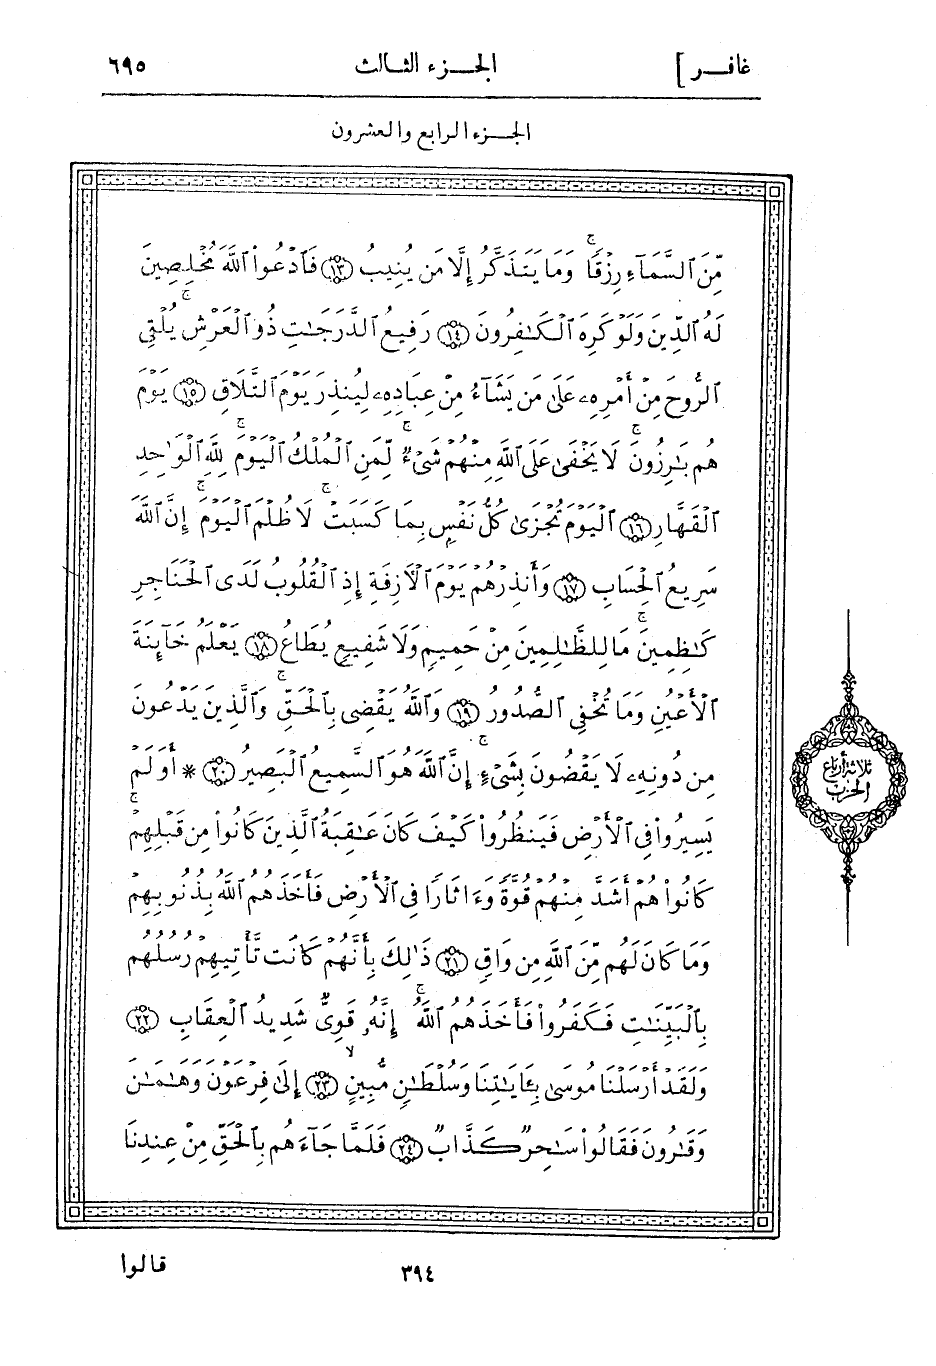 غافر ]
الجزء الثالث
٦٩٥
الجزء الرابع والعشرون
مِّنَ ٱلسَّمَآءِ رِزۡقٗاۚ وَمَا يَتَذَكَّرُ إِلَّا مَن يُنِيبُ ١٣ فَٱدۡعُواْ ٱللَّهَ مُخۡلِصِينَ
لَهُ ٱلدِّينَ وَلَوۡ كَرِهَ ٱلۡكَٰفِرُونَ ١٤ رَفِيعُ ٱلدَّرَجَٰتِ ذُو ٱلۡعَرۡشِۚ يُلۡقِي
ٱلرُّوحَ مِنۡ أَمۡرِهِۦ عَلَىٰ مَن يَشَآءُ مِنۡ عِبَادِهِۦ لِيُنذِرَ يَوۡمَ ٱلتَّلَاقِ ١٥ يَوۡمَ
هُم بَٰرِزُونَۚ لَا يَخۡفَىٰ عَلَى ٱللَّهِ مِنۡهُمۡ شَيۡءٞۚ لِّمَنِ ٱلۡمُلۡكُ ٱلۡيَوۡمَۚ لِلَّهِ ٱلۡوَٰحِدِ
ٱلۡقَهَّارِ ١٦ ٱلۡيَوۡمَ تُجۡزَىٰ كُلُّ نَفۡسِۭ بِمَا كَسَبَتۡۚ لَا ظُلۡمَ ٱلۡيَوۡمَۚ إِنَّ ٱللَّهَ
سَرِيعُ ٱلۡحِسَابِ ١٧ وَأَنذِرۡهُمۡ يَوۡمَ ٱلۡأٓزِفَةِ إِذِ ٱلۡقُلُوبُ لَدَى ٱلۡحَنَاجِرِ
كَٰظِمِينَۚ مَا لِلظَّٰلِمِينَ مِنۡ حَمِيمٖ وَلَا شَفِيعٖ يُطَاعُ ١٨ يَعۡلَمُ خَآئِنَةَ
ٱلۡأَعۡيُنِ وَمَا تُخۡفِي ٱلصُّدُورُ ١٩ وَٱللَّهُ يَقۡضِي بِٱلۡحَقِّۚ وَٱلَّذِينَ يَدۡعُونَ
مِن دُونِهِۦ لَا يَقۡضُونَ بِشَيۡءٍۚ إِنَّ ٱللَّهَ هُوَ ٱلسَّمِيعُ ٱلۡبَصِيرُ ٢٠ * أَوَلَمۡ
يَسِيرُواْ فِي ٱلۡأَرۡضِ فَيَنظُرُواْ كَيۡفَ كَانَ عَٰقِبَةُ ٱلَّذِينَ كَانُواْ مِن قَبۡلِهِمۡۚ
كَانُواْ هُمۡ أَشَدَّ مِنۡهُمۡ قُوَّةٗ وَءَاثَارٗا فِي ٱلۡأَرۡضِ فَأَخَذَهُمُ ٱللَّهُ بِذُنُوبِهِمۡ
وَمَا كَانَ لَهُم مِّنَ ٱللَّهِ مِن وَاقٖ ٢١ ذَٰلِكَ بِأَنَّهُمۡ كَانَت تَّأۡتِيهِمۡ رُسُلُهُم
بِٱلۡبَيِّنَٰتِ فَكَفَرُواْ فَأَخَذَهُمُ ٱللَّهُۚ إِنَّهُۥ قَوِيّٞ شَدِيدُ ٱلۡعِقَابِ ٢٢
وَلَقَدۡ أَرۡسَلۡنَا مُوسَىٰ بِـَٔايَٰتِنَا وَسُلۡطَٰنٖ مُّبِينٍۙ ٢٣ إِلَىٰ فِرۡعَوۡنَ وَهَٰمَٰنَ
وَقَٰرُونَ فَقَالُواْ سَٰحِرٞ كَذَّابٞ ٢٤ فَلَمَّا جَآءَهُم بِٱلۡحَقِّ مِنۡ عِندِنَا
ثلاثة أرباع
الحزب
قالوا
٣٩٤